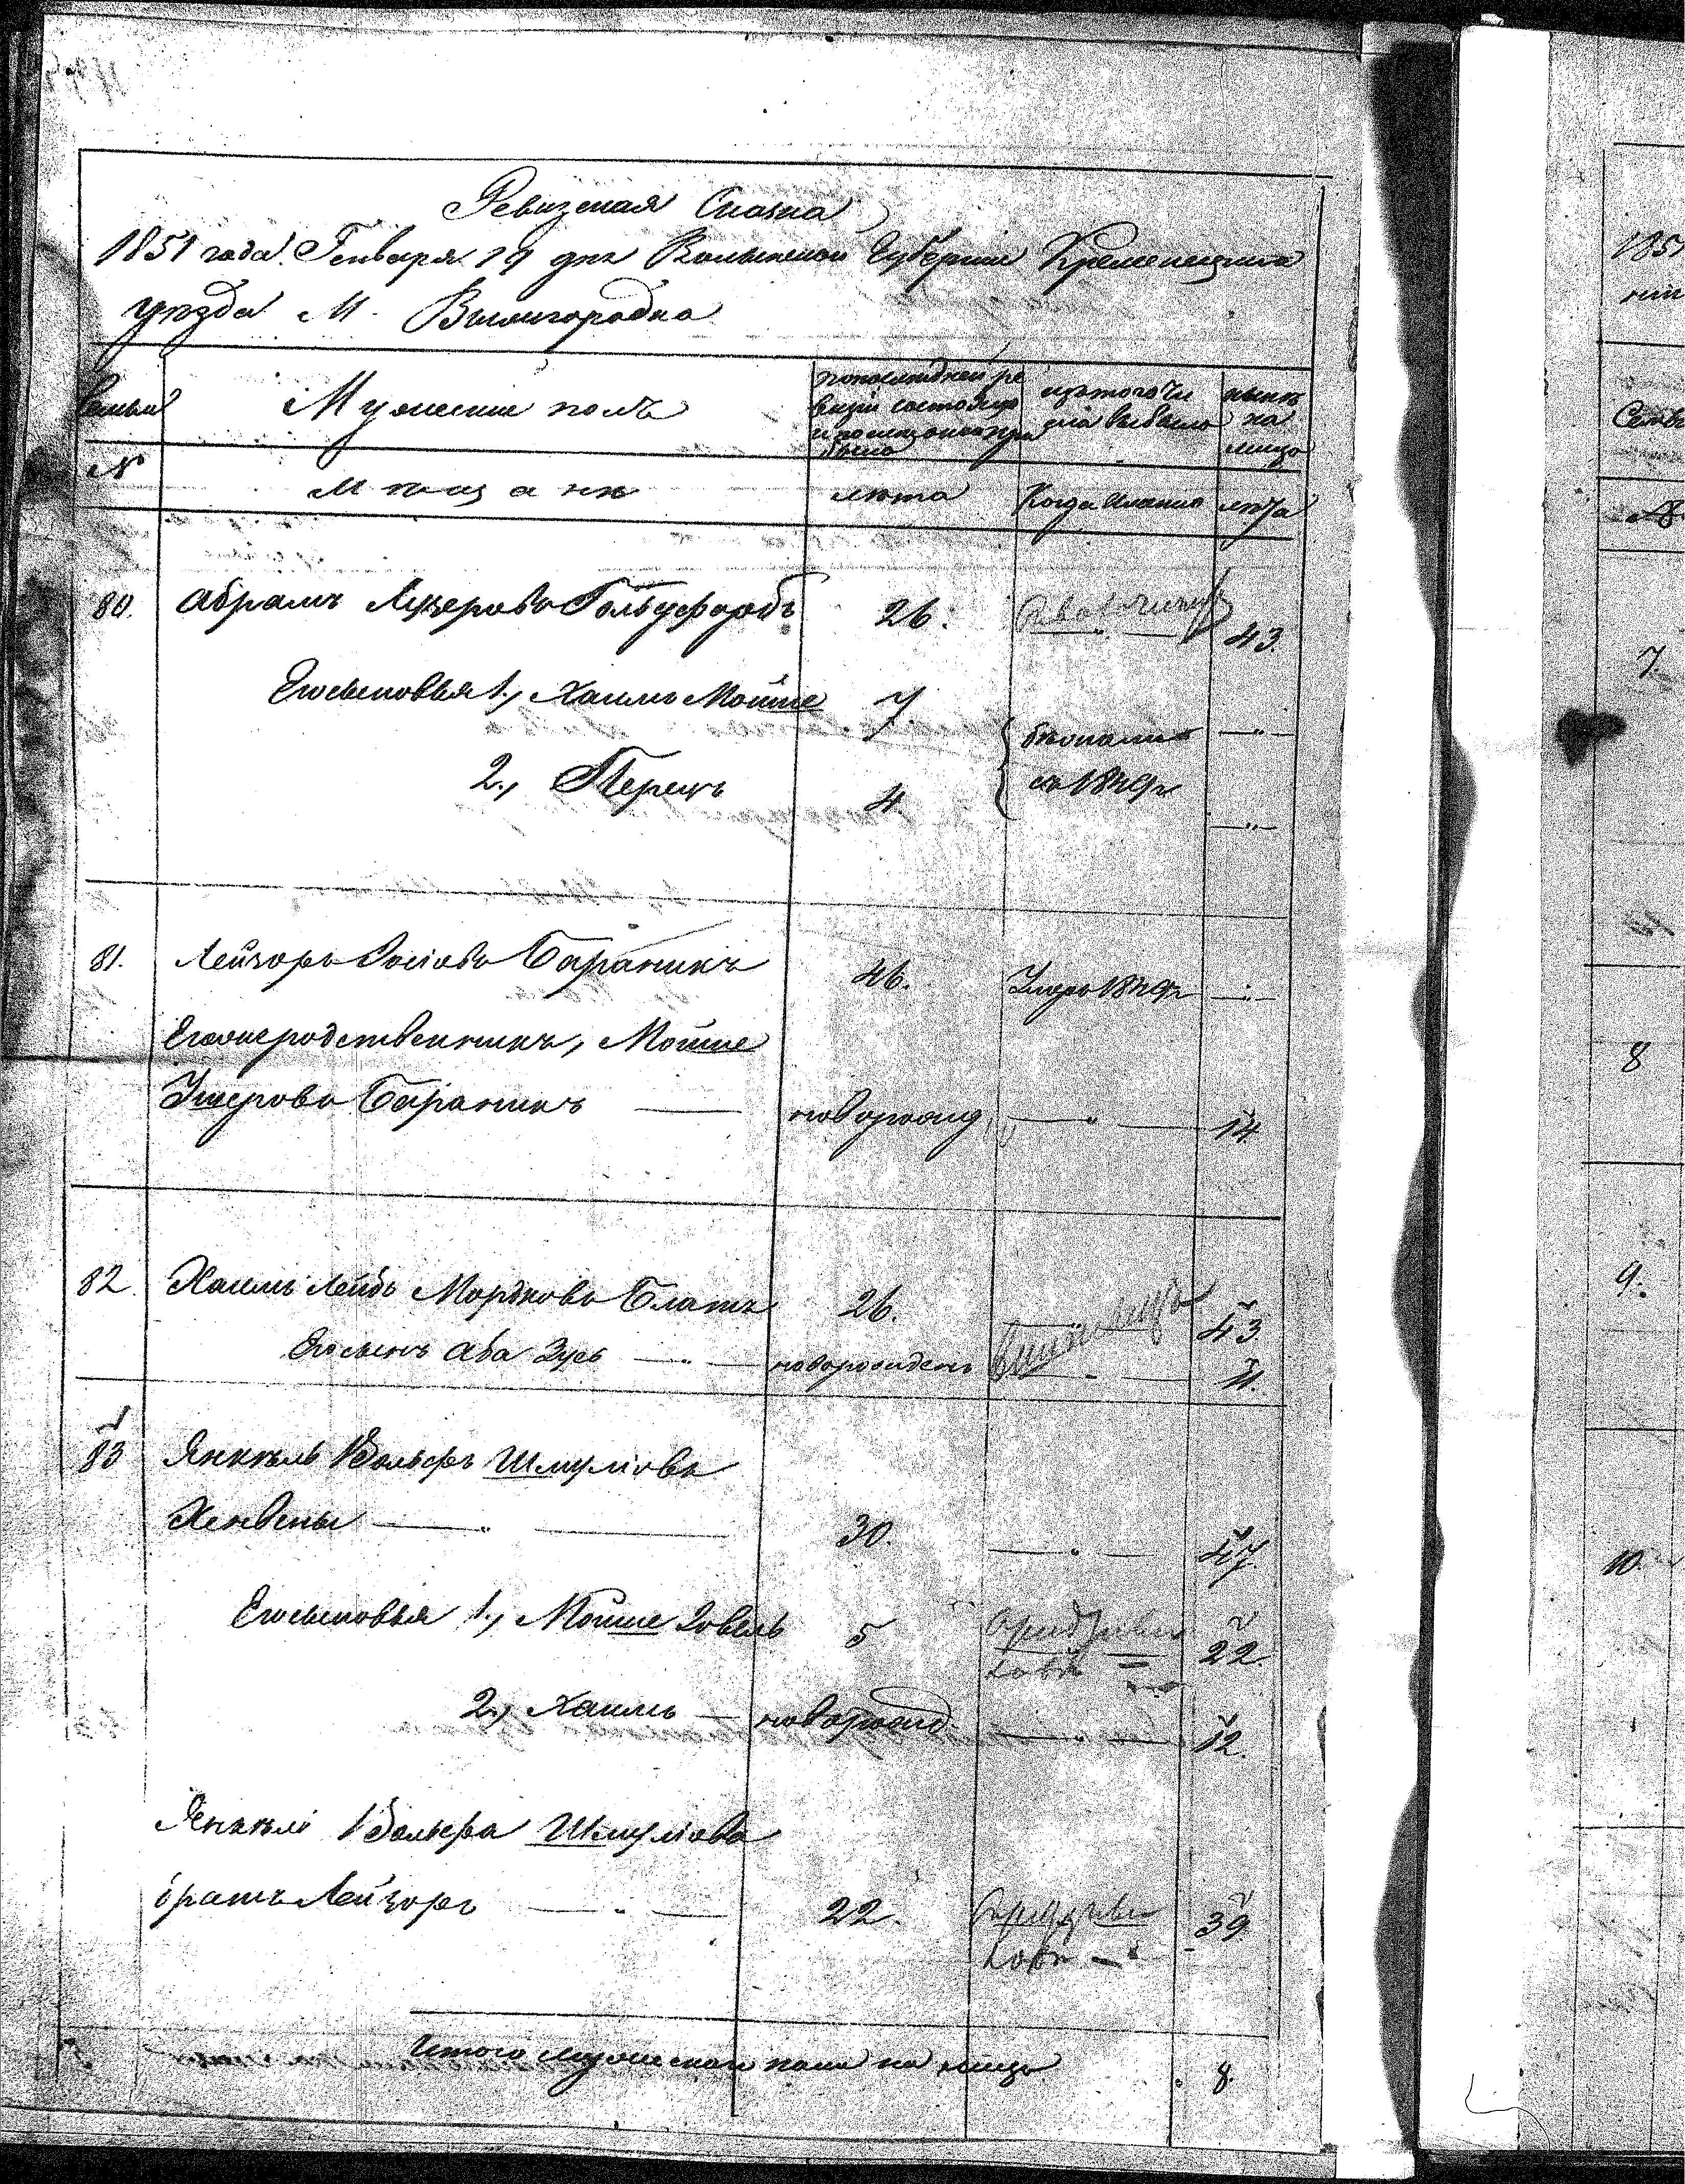 Ревизская Сказка
1851 года Генваря 19 дня Волынской Губернии Кременецкаго
уезда М. Вышгородка
Семьи
Мужескаго полъ
по последней ре
визіи состояло
и после оной при
было
изъ того чи
сла выбыло
ныне
на
лицо
№
Мещане
лета
Когда именно
лета
80. Абрамъ Лузеровъ Гольдфарбъ 26. 43.
Его сыновья 1., Хаимъ Мойше 7 бежали —"—
2., Перецъ 4 съ 1849 г —"—
81. Лейзоръ Іосіовъ Бараникъ 46. Умеръ 1849 г —"—
Его родственникъ, Мойше
Ушеровъ Бараникъ — новорожд —"— 14
82. Хаимъ Лейбъ Мордковъ Блатъ 26. 43
Его сынъ Аба Зусь —"— новорожденъ —"— 11.
83 Янкель Вольфъ Шмуліовъ
—"— 30. —"— 47.
Его сыновья 1., Мойше Ховель 5 22.
2., Хаимъ — новорожд —"— 12.
Янкеля Вольфа Шмуліова
братъ Лейзоръ —"— 22. 39
Итого мужеска пола на лицо 8.
1851
Семьи
№
7
8
9.
10.